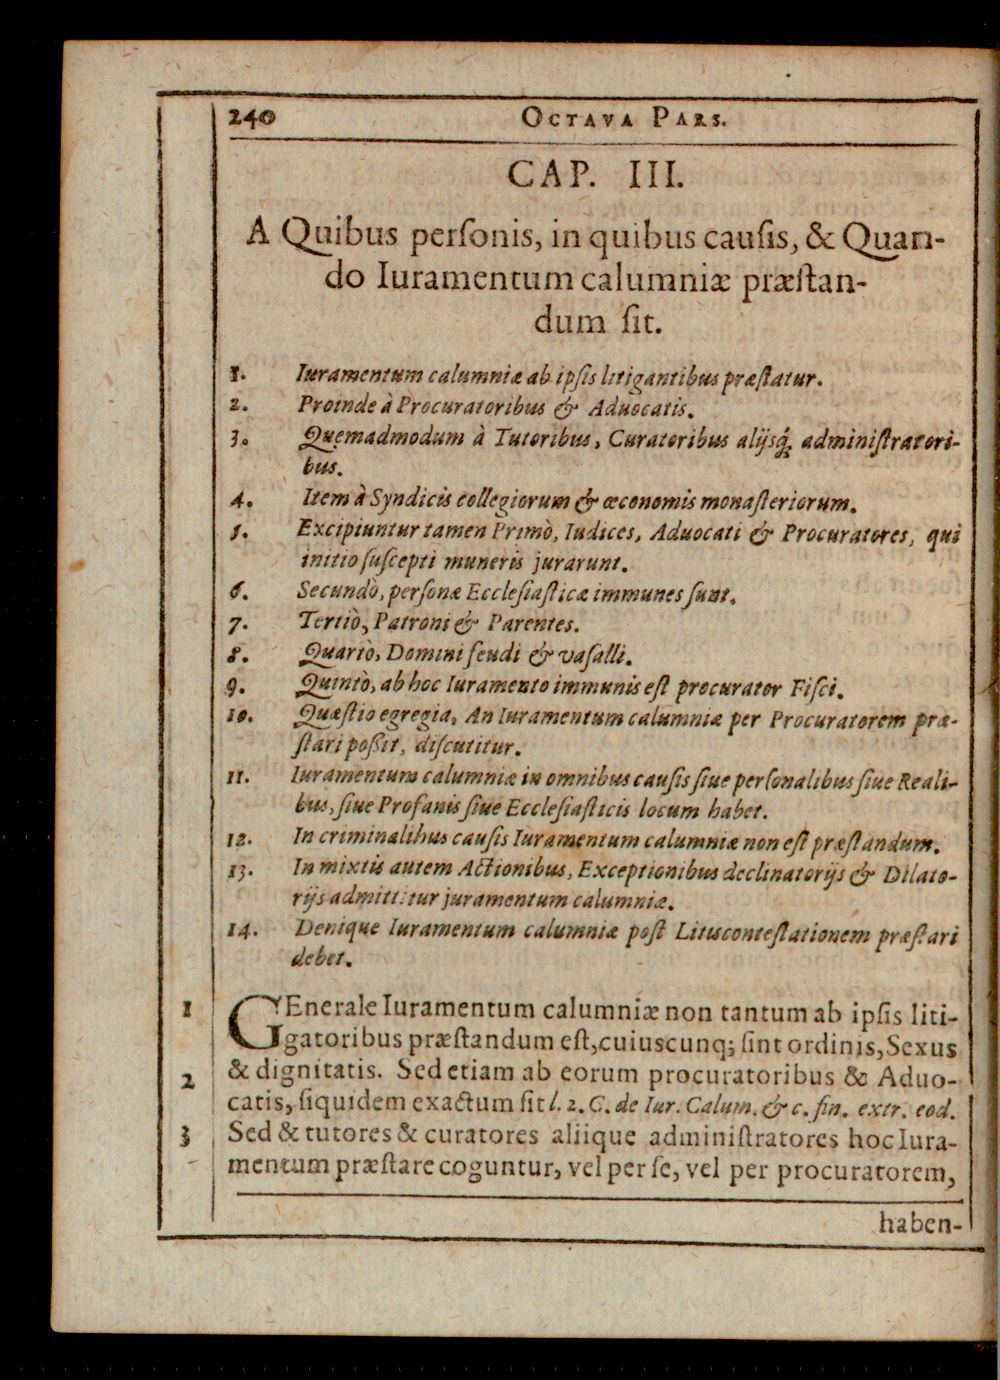 240 OCTAVA PARS.
CAP. III.
A Quibus perſonis, in quibus cauſis, & Quan-
do Iuramentum calumniæ præſtan-
dum ſit.
1. Iuramentum calumniæ ab ipſis litigantibus præſtatur.
2. Proinde à Procuratoribus & Aduocatis.
3. Quemadmodum à Tutoribus, Curatoribus alijsq́; adminiſtratori-
bus.
4. Item à Syndicis collegiorum & œconomis monaſteriorum.
5. Excipiuntur tamen Primò, Iudices, Aduocati & Procuratores, qui
initio ſuſcepti muneris jurarunt.
6. Secundò, perſonæ Eccleſiaſticæ immunes ſunt.
7. Tertiò, Patroni & Parentes.
8. Quartò, Domini feudi & vaſalli.
9. Quintò, ab hoc Iuramento immunis eſt procurator Fiſci.
10. Quæſtio egregia, An Iuramentum calumniæ per Procuratorem præ-
ſtari poßit, diſcutitur.
11. Iuramentum calumniæ in omnibus cauſis ſiue perſonalibus ſiue Reali-
bus, ſiue Profanis ſiue Eccleſiaſticis locum habet.
12. In criminalibus cauſis Iuramentum calumniæ non eſt præſtandum.
13. In mixtis autem Actionibus, Exceptionibus declinatorijs & Dilato-
rijs admittitur juramentum calumniæ.
14. Denique Iuramentum calumniæ poſt Litisconteſtationem præſtari
debet.
1 GEnerale Iuramentum calumniæ non tantum ab ipſis liti-
gatoribus præſtandum eſt, cuiuscunq; ſint ordinis, Sexus
2 & dignitatis. Sed etiam ab eorum procuratoribus & Aduo-
catis, ſiquidem exactum ſit l. 2. C. de Iur. Calum. & c. fin. extr. eod.
3 Sed & tutores & curatores aliique adminiſtratores hoc Iura-
mentum præſtare coguntur, vel per ſe, vel per procuratorem,
haben-